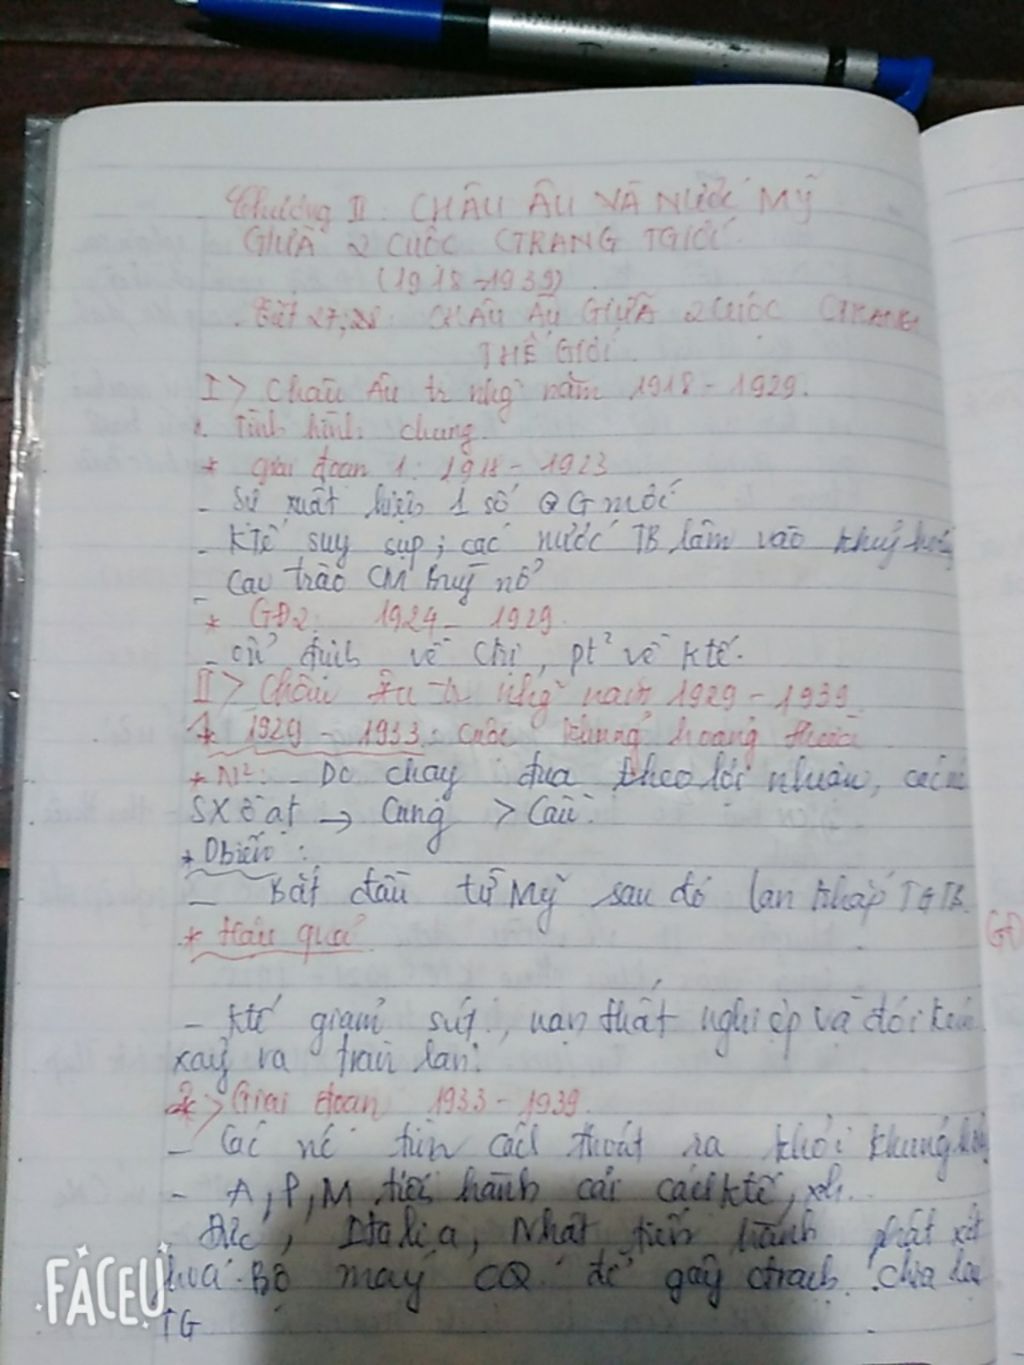 Chương II: CHÂU ÂU VÀ NƯỚC MỸ
GIỮA 2 CUỘC CTRANG TGIỚI
(1918-1939)
Tiết 27, 28: CHÂU ÂU GIỮA 2 CUỘC CTRANG
THẾ GIỚI.
I > Châu Âu tr nhg~ năm 1918 - 1929.
1. Tình hình chung.
* giai đoạn 1: 1918 - 1923
- Sự xuất hiện 1 số QG mới
- Ktế suy sụp; các nước TB lâm vào
- Cao trào CM bùng nổ
* GĐ2: 1924 - 1929.
- ổn định về Ctrị, pt² về ktế.
II > Châu Âu tr nhg~ năm 1929 - 1939
1. 1929 - 1933. cuộc khủng hoảng
* N²: - Do chạy đua theo lợi nhuận, các
SX ồ ạt → Cung > Cầu.
* Dbiến:
- Bắt đầu từ Mỹ sau đó lan khắp TGTB.
* Hậu quả
GĐ
- Ktế giảm sút, nạn thất nghiệp và đói
xảy ra tràn lan.
2 > Giai đoạn 1933 - 1939.
- Các nc tìm cách thoát ra khỏi khủng
- A, P, M tiến hành cải cách ktế, xh.
Đức, Italia, Nhật tiến hành phát xít
hoá Bộ máy CQ để gây ctranh chia lại
TG
FACEU